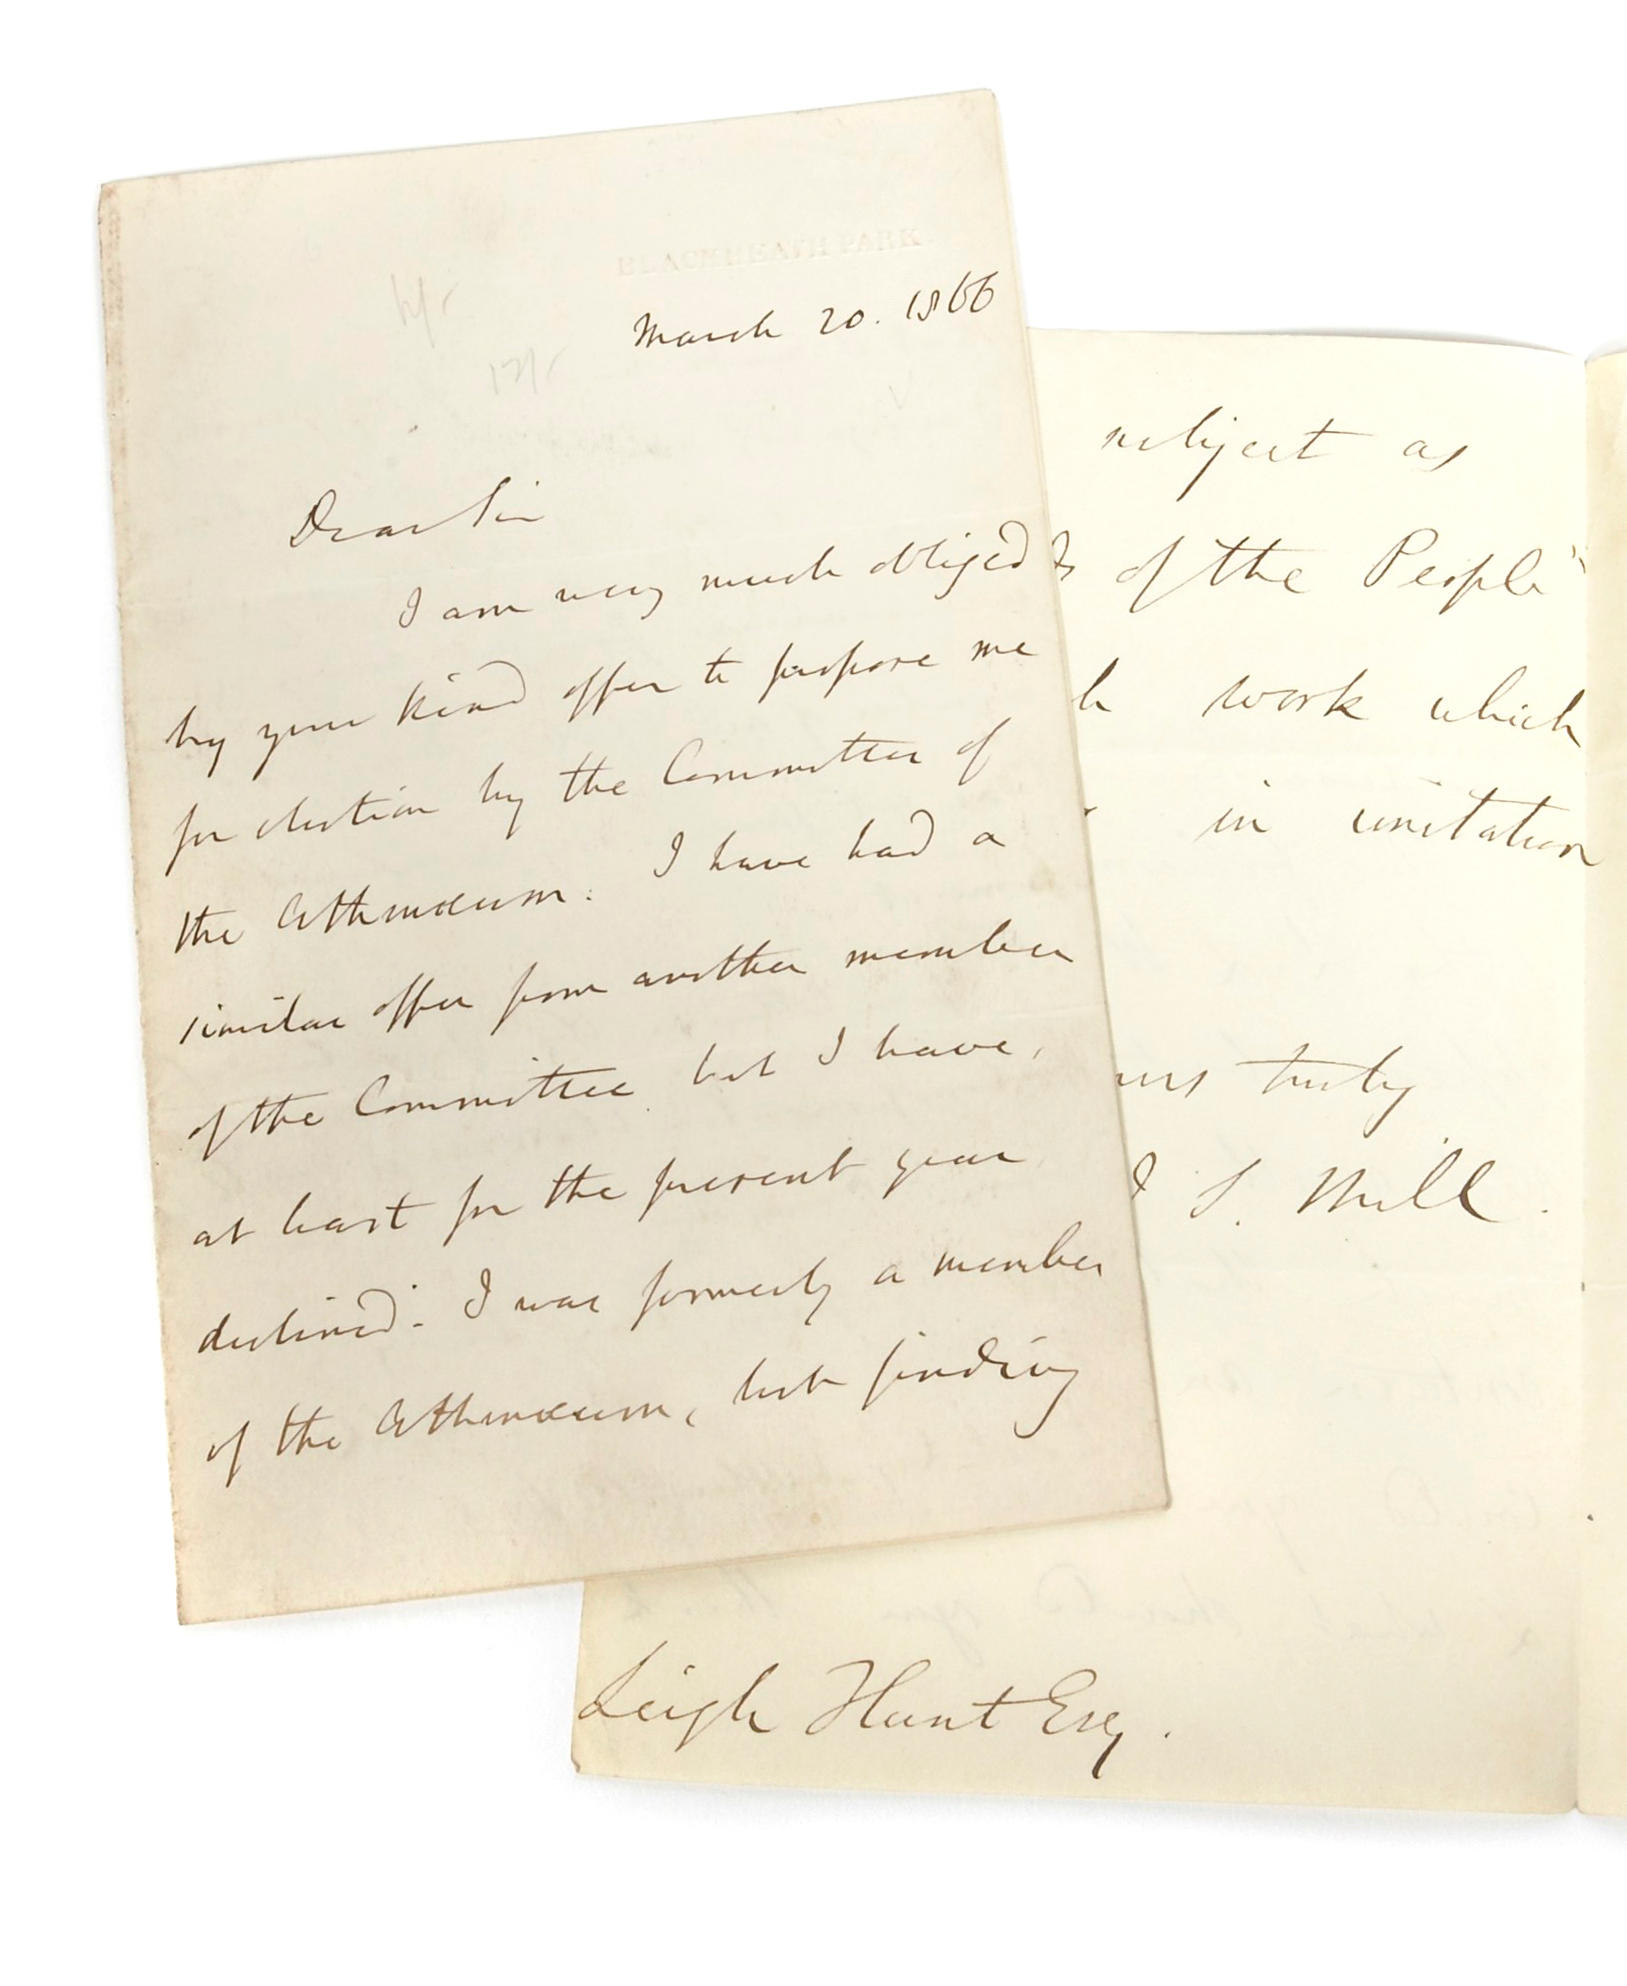 BLACKHEATH PARK.
March 20. 1866
Dear Sir
I am very much obliged
by your kind offer to propose me
for election by the Committee of
the Athenæum. I have had a
similar offer from another member
of the Committee but I have,
at least for the present year
declined. I was formerly a member
of the Athenæum, but finding
subject as
of the People"
work which
in imitation
truly
J S. Mill.
Leigh Hunt Esq.